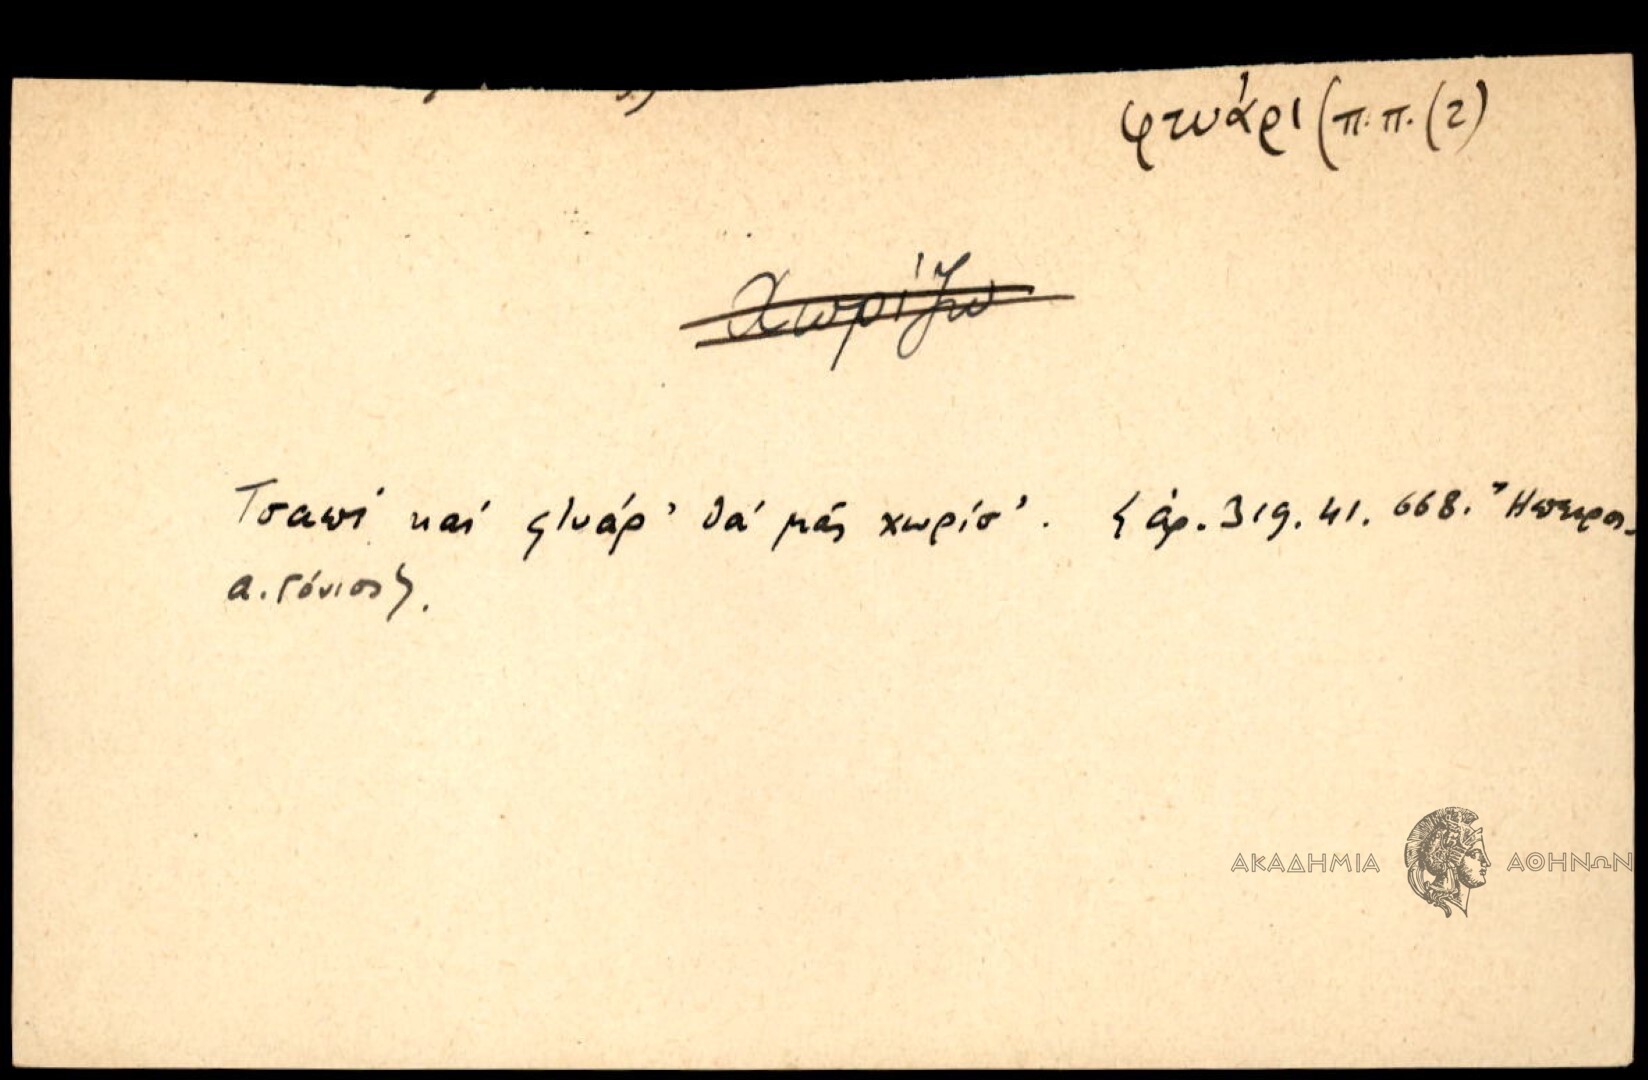 φτυάρι (π.π. (2)
Χωρίζω
Τσαπί καί φτυάρ' θά μᾶς χωρίσ'. {ἀρ. 319. 41. 668. Ἤπειρος.
α. Γόνιος}.
ΑΚΑΔΗΜΙΑ ΑΘΗΝΩΝ